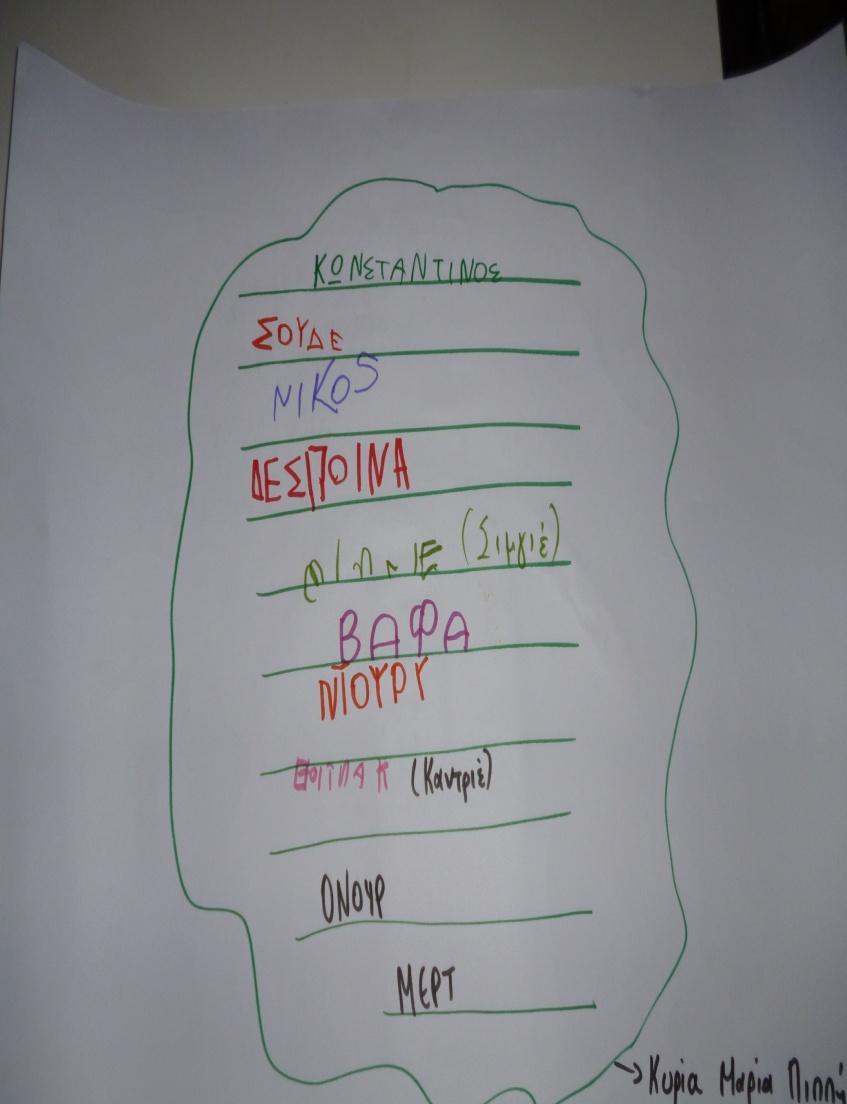 ΚΩΝΣΤΑΝΤΙΝΟΣ
ΣΟΥΔΕ
ΝΙΚΟS
ΔΕΣΠΟΙΝΑ
(Σιμγιέ)
ΒΑΦΑ
ΝΙΟΥΡΥ
(Καντριέ)
ΟΝΟΥΡ
ΜΕΡΤ
→ Κυρία Μαρία